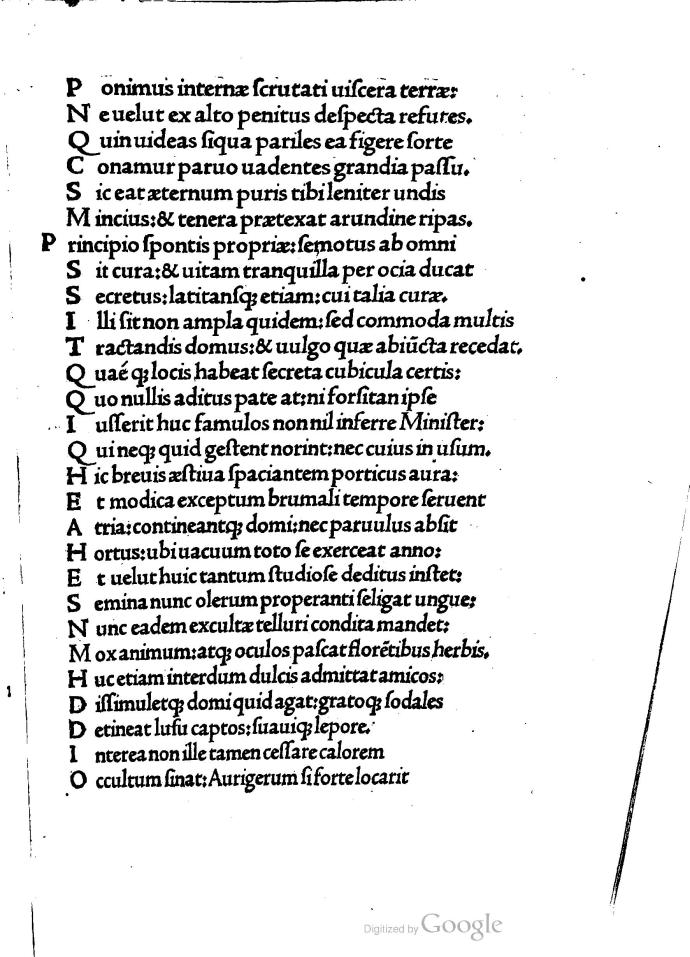 P onimus internæ ſcrutati uiſcera terræ:
N e uelut ex alto penitus deſpecta refutes.
Q uin uideas ſiqua pariles ea figere ſorte
C onamur paruo uadentes grandia paſſu.
S ic eat æternum puris tibi leniter undis
M incius:& tenera prætexat arundine ripas.
P rincipio ſpontis propriæ: ſemotus ab omni
S it cura:& uitam tranquilla per ocia ducat
S ecretus:latitanſq; etiam: cui talia curæ.
I lli ſit non ampla quidem: ſed commoda multis
T ractandis domus:& uulgo quæ abiūcta recedat.
Q uaé q; locis habeat ſecreta cubicula certis:
Q uo nullis aditus pate at:ni forſitan ipſe
I uſſerit huc famulos non nil inferre Miniſter:
Q ui neq; quid geſtent norint:nec cuius in uſum.
H ic breuis æſtiua ſpaciantem porticus aura:
E t modica exceptum brumali tempore ſeruent
A tria:contineantq; domi:nec paruulus abſit
H ortus:ubi uacuum toto ſe exerceat anno:
E t uelut huic tantum ſtudioſe deditus inſtet:
S emina nunc olerum properanti ſeligat ungue:
N unc eadem excultæ telluri condita mandet:
M ox animum:atq; oculos paſcat florētibus herbis.
H uc etiam interdum dulcis admittat amicos:
D iſſimuletq; domi quid agat:gratoq; ſodales
D etineat luſu captos:ſuauiq; lepore.
I nterea non ille tamen ceſſare calorem
O ccultum ſinat: Aurigerum ſi forte locarit
Digitized by Google